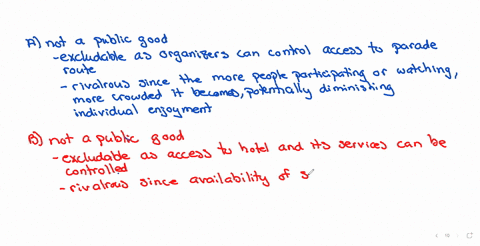 A) not a public good
- excludable as organizers can control access to parade
route
- rivalrous since the more people participating or watching,
more crowded it becomes, potentially diminishing
individual enjoyment
B) not a public good
- excludable as access to hotel and its services can be
controlled
- rivalrous since availability of s